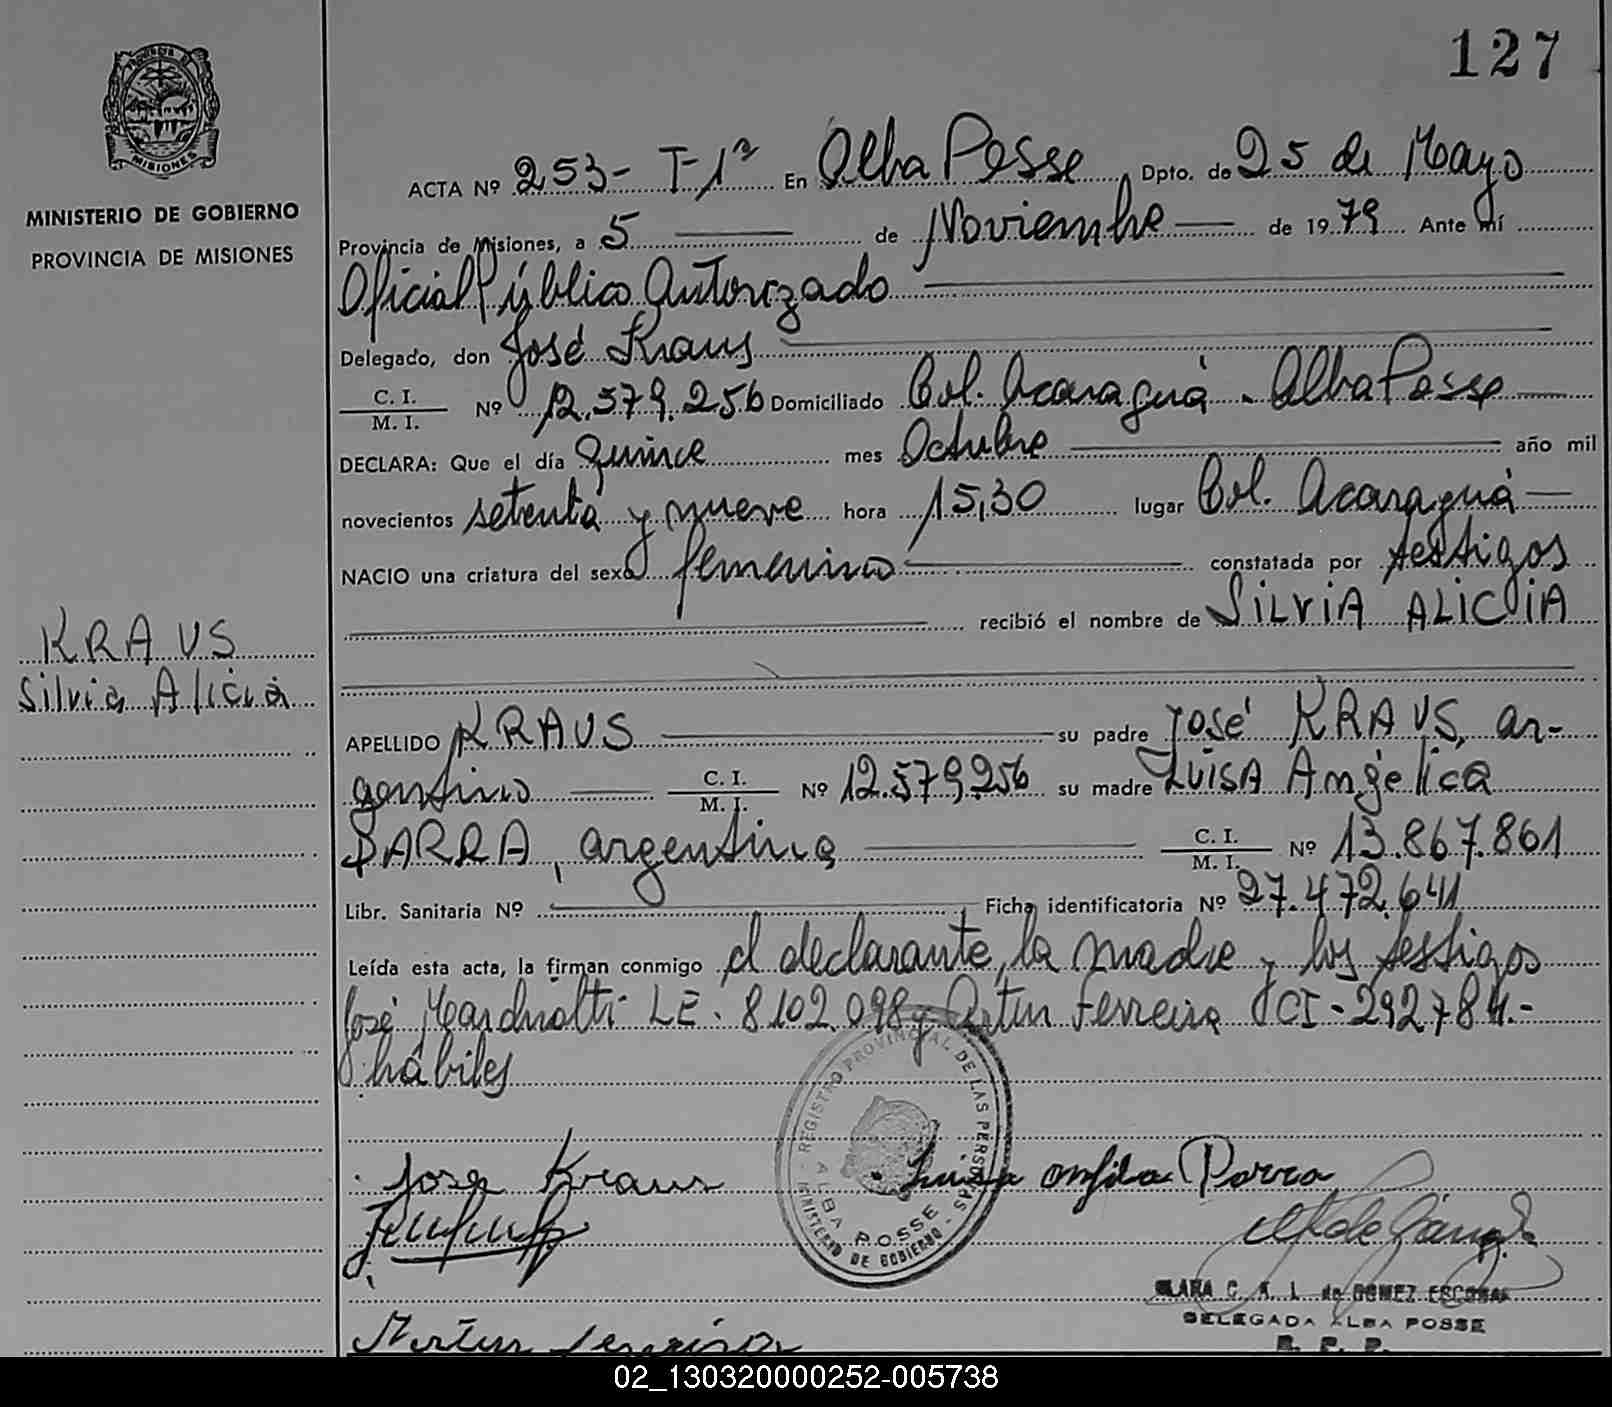 127
PROVINCIA DE
MISIONES
MINISTERIO DE GOBIERNO
PROVINCIA DE MISIONES
ACTA Nº 253- T-1º En Alba Posse Dpto. de 25 de Mayo
Provincia de Misiones, a 5 de Noviembre de 1979 Ante mí
Oficial Público Autorizado
Delegado, don José Kraus
C. I.
M. I. Nº 12.579.256 Domiciliado Col. Acaraguá - Alba Posse
DECLARA: Que el día quince mes Octubre año mil
novecientos setenta y nueve hora 15,30 lugar Col. Acaraguá
NACIO una criatura del sexo femenino constatada por testigos
recibió el nombre de SILVIA ALICIA
KRAUS
Silvia Alicia
APELLIDO KRAUS su padre José KRAUS, ar-
gentino C. I.
M. I. Nº 12.579.256 su madre LUISA Angélica
PARRA, argentina C. I.
M. I. Nº 13.867.861
Libr. Sanitaria Nº Ficha identificatoria Nº 27.472.641
Leída esta acta, la firman conmigo el declarante, la madre y los testigos
José LE. 8.102.098 y Artur Ferreira CI-292784.-
hábiles
REGISTRO PROVINCIAL DE LAS PERSONAS
ALBA POSSE
MINISTERIO DE GOBIERNO
Jose Kraus Luisa Parra
CLARA C. A. L. de GOMEZ ESCOBAR
DELEGADA ALBA POSSE
R. P. P.
02_130320000252-005738